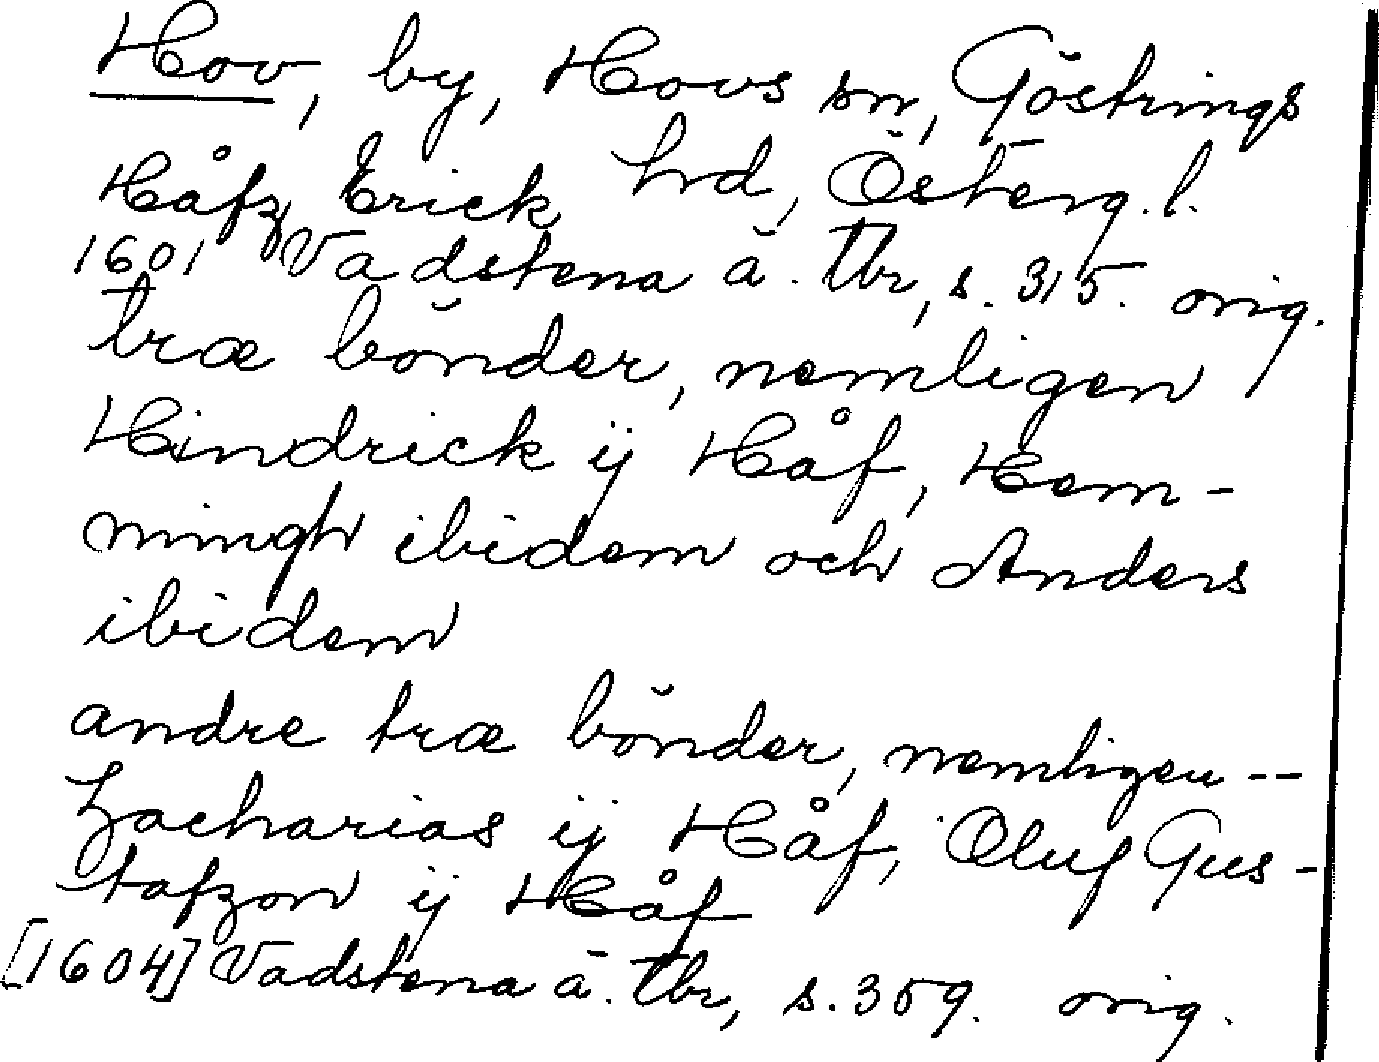 Hov, by, Hovs sn, Göstrings
Håfz Erick hrd, Österg. l.
1601 Vadstena ä. tbr, s. 315. orig.
træ bönder, nemligen
Hindrick ij Håf, Hem-
mingh ibidem och Anders
ibidem
andre træ bönder, nemligen --
Zacharias ij Håf, Oluf Gus-
tafzon ij Håf
[1604] Vadstena ä. tbr, s. 359. orig.